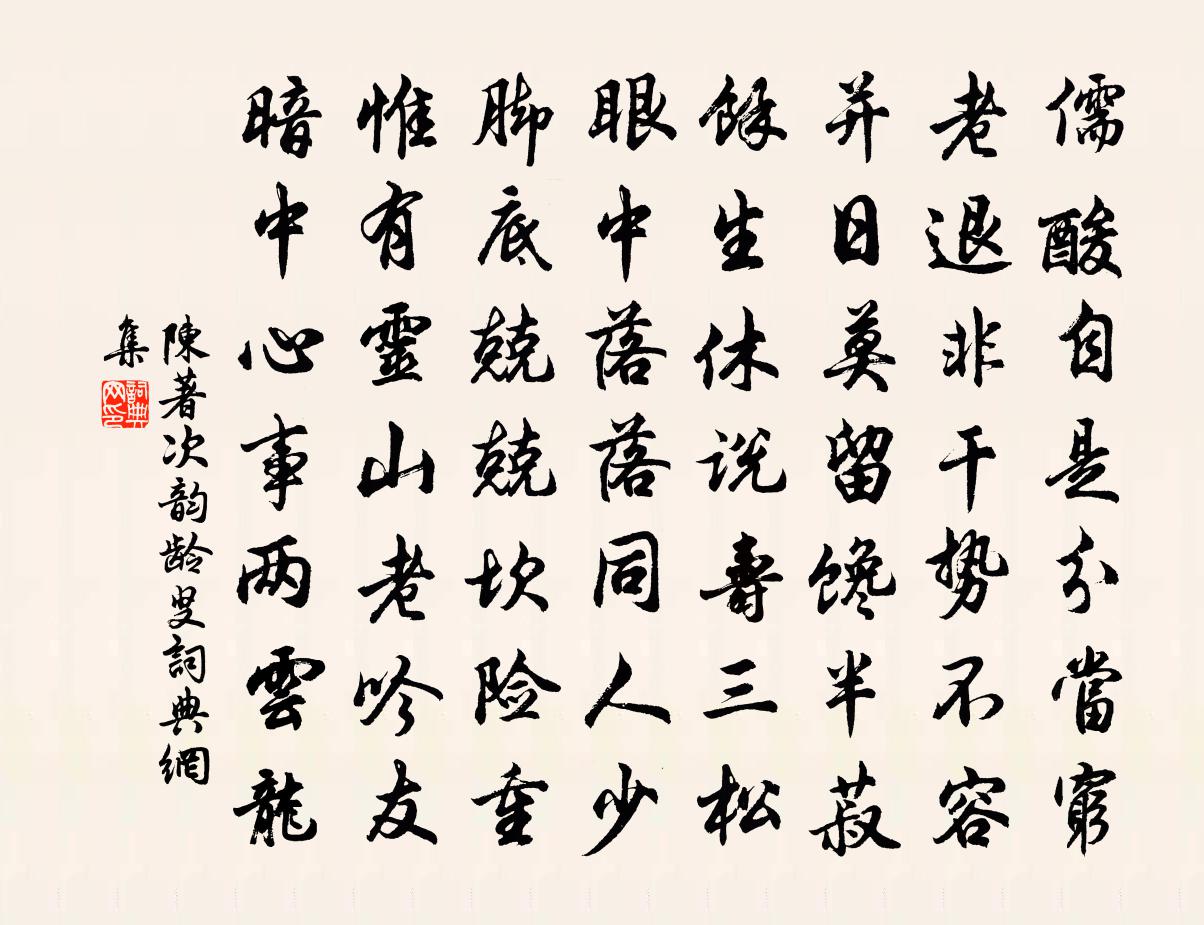 儒酸自是分當窮
老退非干势不容
并日莫留馋半菽
餘生休说壽三松
眼中落落同人少
脚底兢兢坎险重
惟有靈山老吟友
暗中心事两雲龍
陳著次韵龄叟詞典網
集
詞典
网印